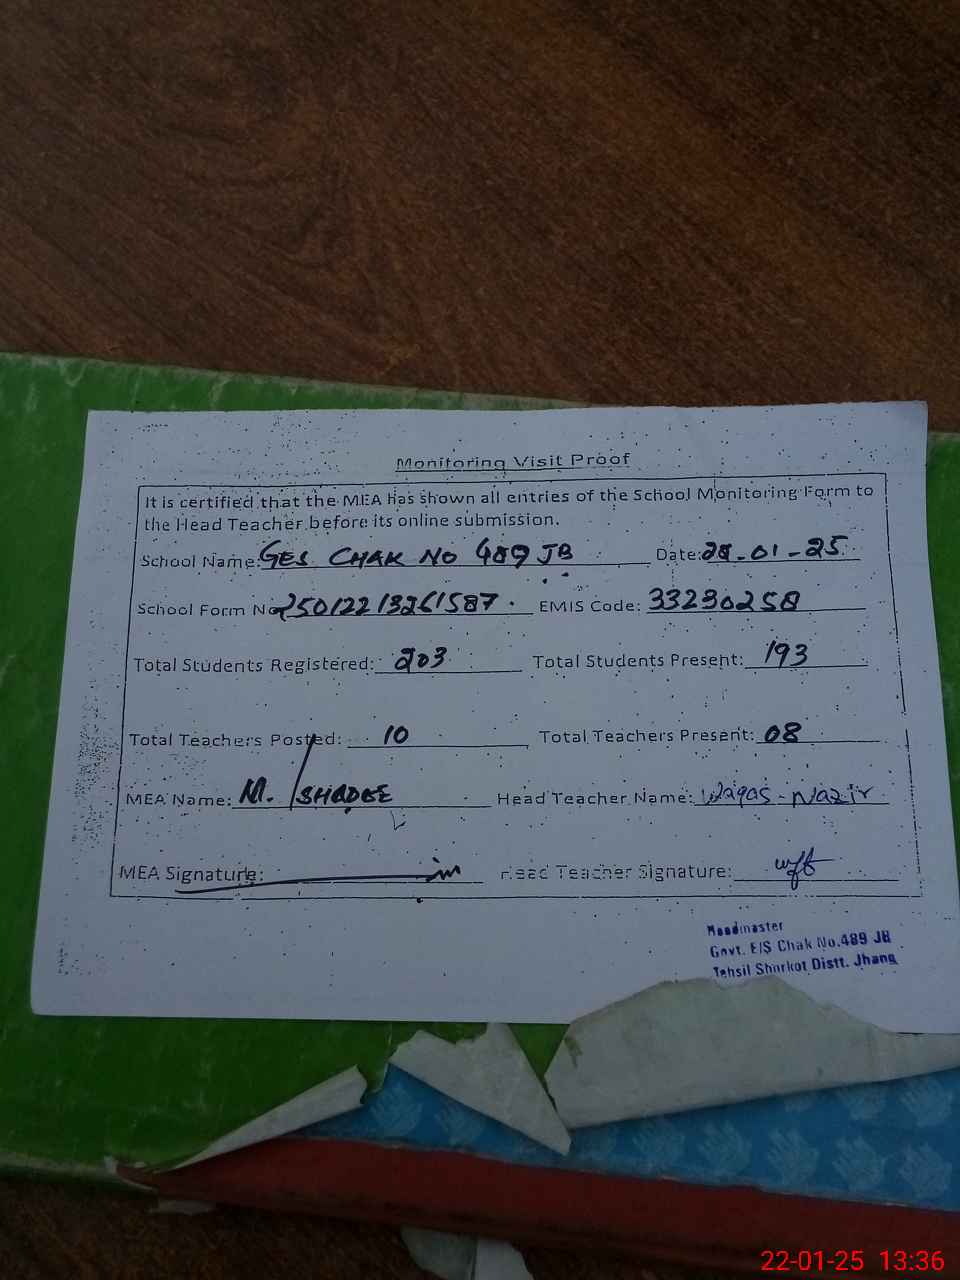 Monitoring Visit Proof
It is certified that the MEA has shown all entries of the School Monitoring Form to
the Head Teacher before its online submission.
School Name: GES CHAK NO 489 JB Date: 22-01-25
School Form No 25012213261587. EMIS Code: 33230258
Total Students Registered: 203 Total Students Present: 193
Total Teachers Posted: 10 Total Teachers Present: 08
MEA Name: M. Head Teacher Name: Waqas - Nazir
MEA Signature: Head Teacher Signature:
Headmaster
Govt. E/S Chak No.489 JB
Tehsil Shorkot Distt. Jhang
22-01-25 13:36